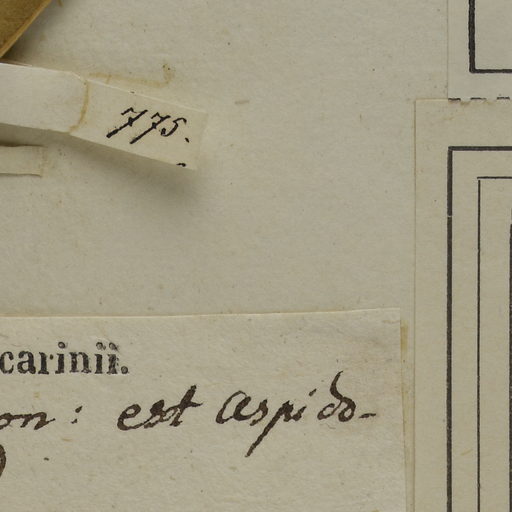 775.
carinii.
on: est Aspido-